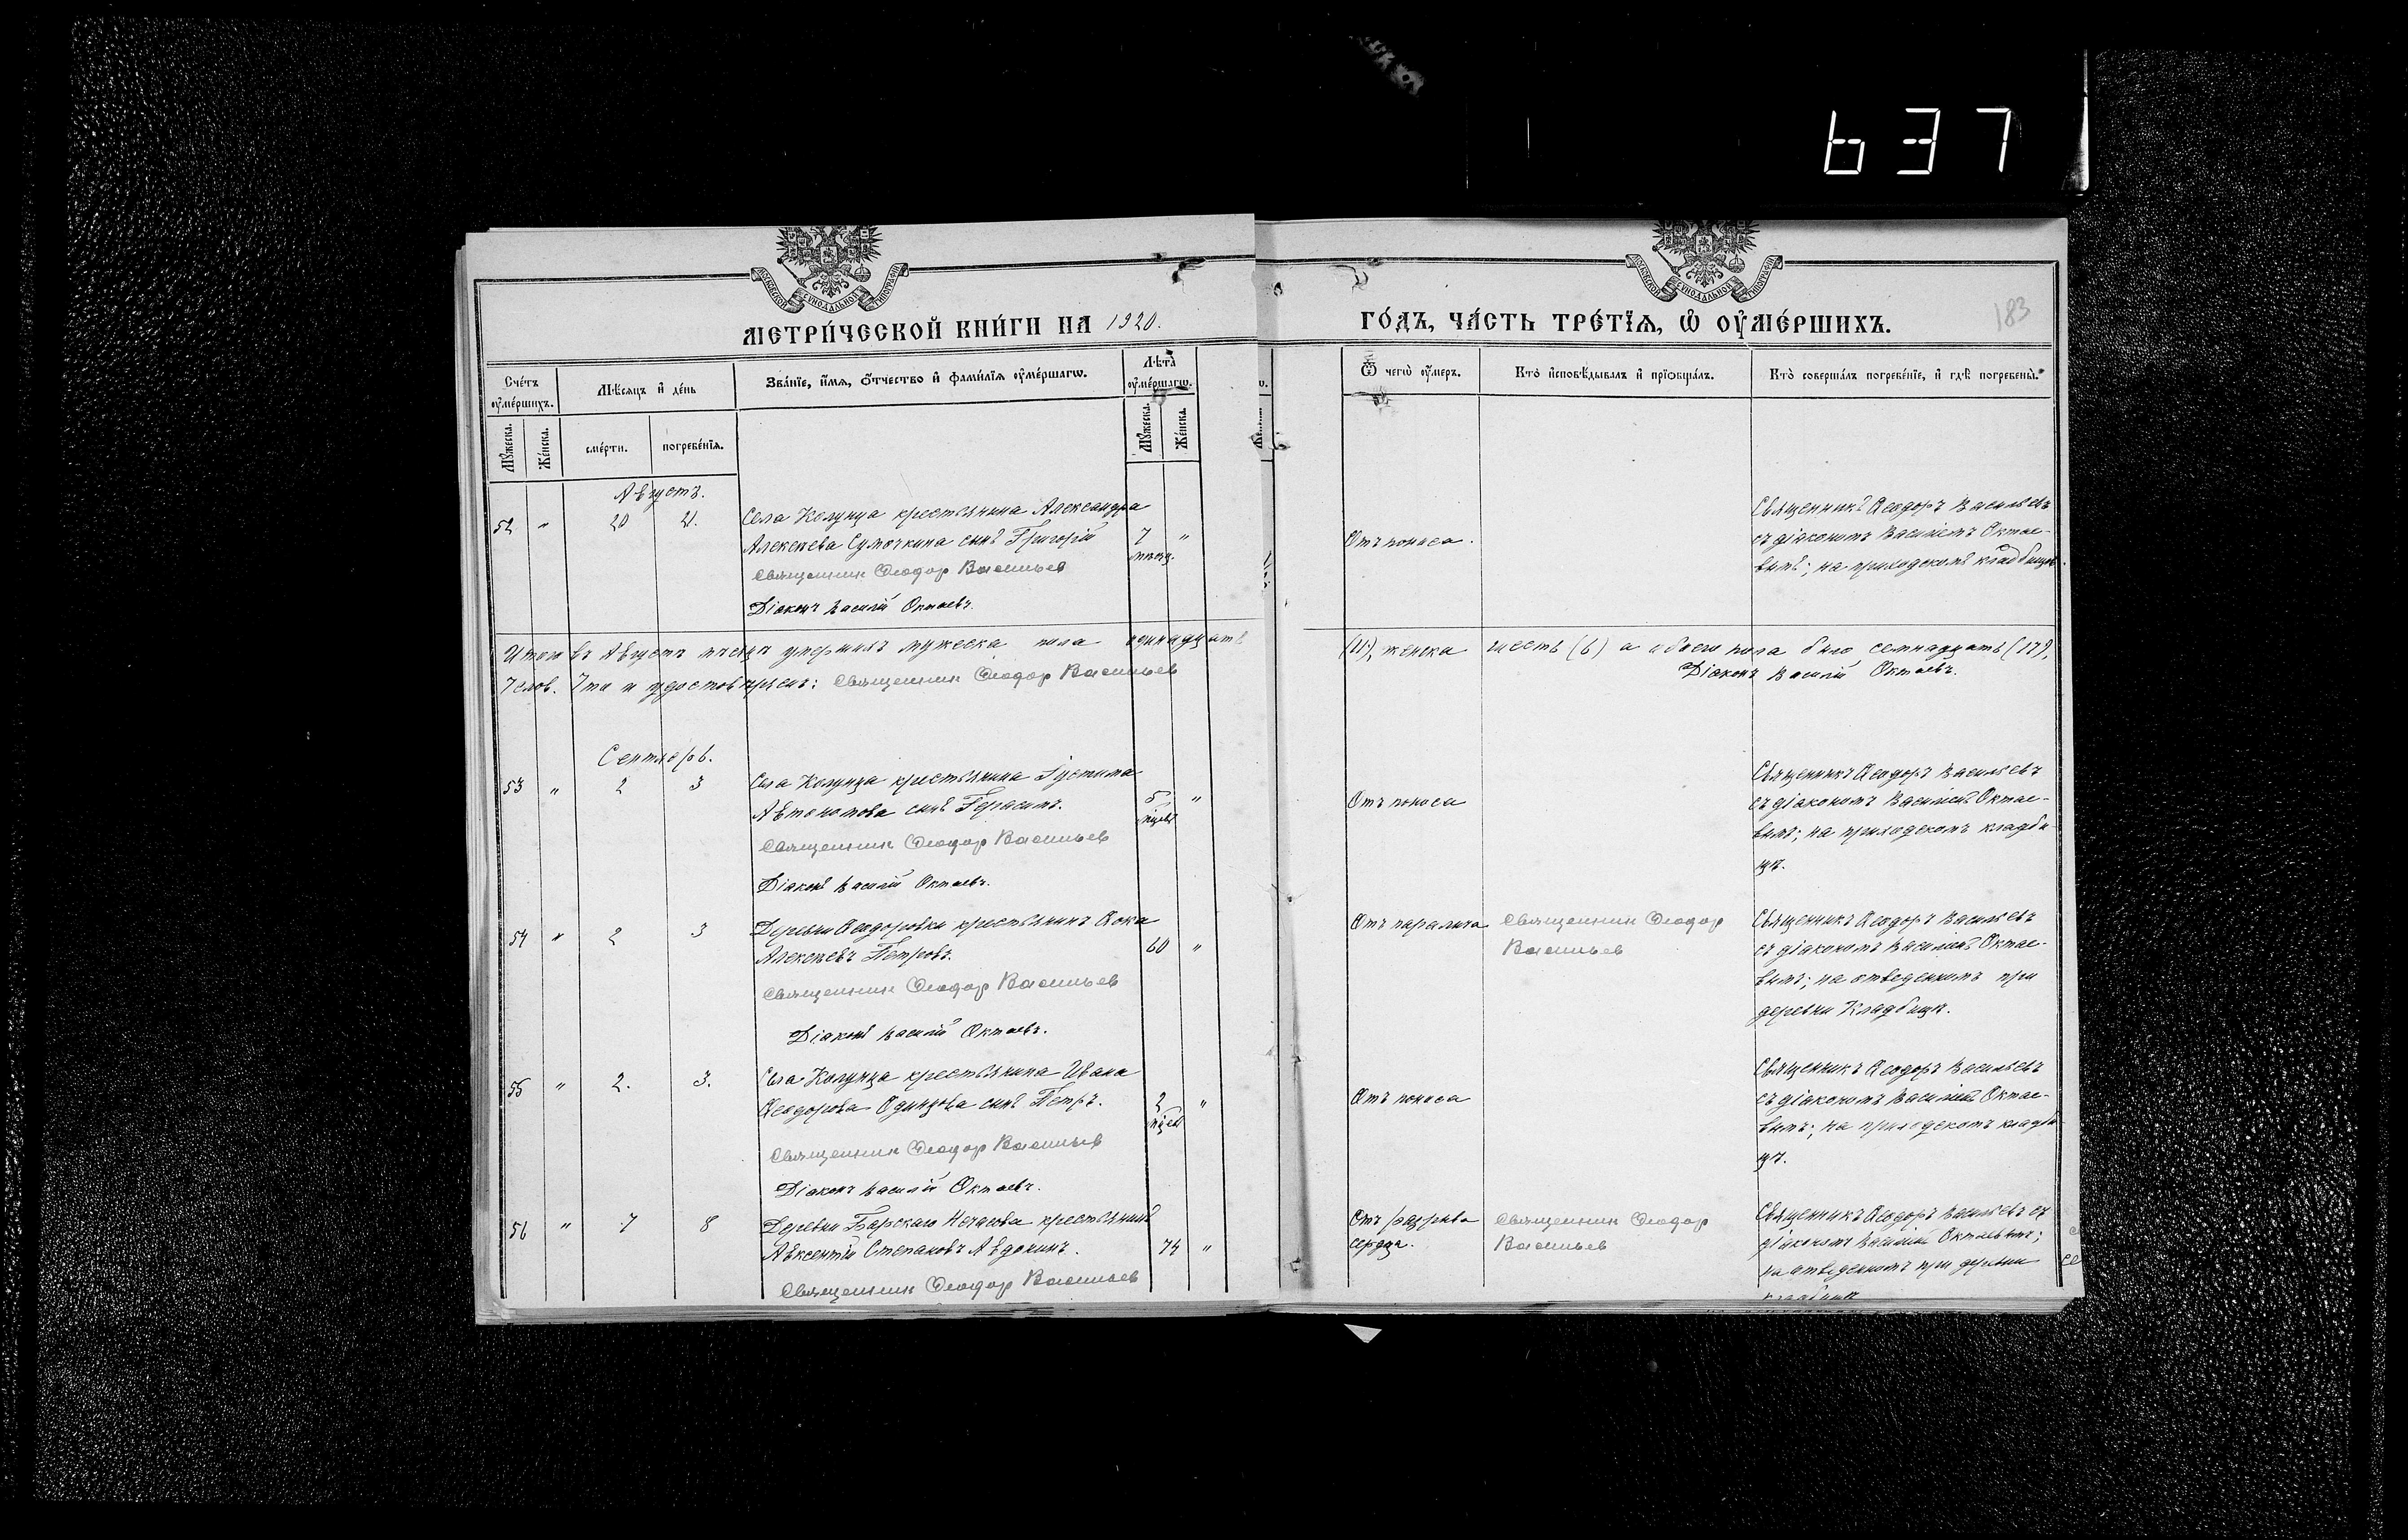 637
МОСКОВСКОЙ СѴНОДАЛЬНОЙ ТИПОГРАФІИ
МОСКОВСКОЙ СѴНОДАЛЬНОЙ ТИПОГРАФІИ
МЕТРИ́ЧЕСКОЙ КНИ́ГИ НА 1920.
ГО́ДЪ, ЧА́СТЬ ТРЕ́ТІѦ, Ѡ҆ ОУ҆МЕ́РШИХЪ.
183
Сче́тъ оу҆ме́ршихъ.
Мѣ́сяцъ и҆ де́нь
Зва́нїе, и҆́мѧ, ѻ҆́тчество и҆ фами́лїѧ оу҆ме́ршагѡ.
Лѣ́та оу҆ме́ршагѡ.
Ѿ чегѡ̀ оу҆́меръ.
Кто̀ и҆сповѣ́дывалъ и҆ прїѡбща́лъ.
Кто̀ соверша́лъ погребе́нїе, и҆ гдѣ̀ погребены̀.
Мꙋ́жеска.
Же́нска.
сме́рти.
погребе́нїѧ.
Мꙋ́жеска.
Же́нска.
Августъ.
52 " 20 21. Села Колунца крестьянина Александра
Алексѣева Сумочкина сынъ Григорій 7 "
мѣсяц.
Священник Феодор Васильев
Діаконъ Василій Октаевъ.
Отъ поноса.
Священникъ Ѳеодоръ Васильевъ
съ діакономъ Василіемъ Октае-
вымъ; на приходскомъ кладбищѣ.
Итого въ Августѣ мѣсяцѣ умершихъ мужеска пола одинадцать (11), женска шесть (6) а обоего пола было семнадцать (17),
7 слов. Что и удостовѣряемъ: Священник Феодор Васильев
Діаконъ Василій Октаевъ.
Сентябрь.
53 " 2 3 Села Колунца крестьянина Густина
Автономова сынъ Герасимъ. 5 "
мѣсяц
Священник Феодор Васильев
Діаконъ Василій Октаевъ.
Отъ поноса
Священникъ Ѳеодоръ Васильевъ
съ діакономъ Василіемъ Октае-
вымъ; на приходскомъ кладби-
щѣ.
54 " 2 3 Деревни Ѳеодоровки крестьянинъ Ѳока
Алексѣевъ Петровъ. 60 "
Священник Феодор Васильев
Діаконъ Василій Октаевъ.
Отъ паралича
Священник Феодор
Васильев
Священникъ Ѳеодоръ Васильевъ
съ діакономъ Василіемъ Октае-
вымъ; на отведенномъ при
деревни кладбищѣ.
55 " 2. 3. Села Колунца крестьянина Ивана
Ѳеодорова Одинцова сынъ Петръ. 2 "
мѣсяц
Священник Феодор Васильев
Діаконъ Василій Октаевъ.
Отъ поноса
Священникъ Ѳеодоръ Васильевъ
съ діакономъ Василіемъ Октае-
вымъ; на приходскомъ кладби-
щѣ.
56 " 7 8 Деревни Барскаго Нечасова крестьянинъ
Авксентій Степановъ Авдонинъ. 74 "
Священник Феодор Васильев
Отъ разрыва
сердца.
Священник Феодор
Васильев
Священникъ Ѳеодоръ Васильевъ съ
діакономъ Василіемъ Октаевымъ;
на отведенномъ при деревни
кладбищѣ